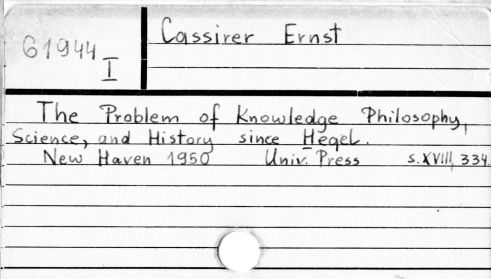 61944
I
Cassirer Ernst
The Problem of Knowledge Philosophy,
Science, and History since Hegel.
New Haven 1950 Univ. Press s. XVIII, 334.